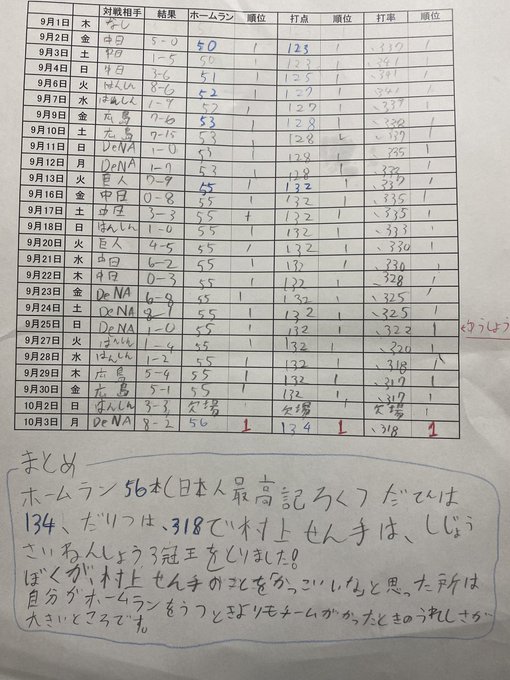 対戦相手 結果 ホームラン 順位 打点 順位 打率 順位
9月1日 木 なし
9月2日 金 中日 5-0 50 1 123 1 .337 1
9月3日 土 中日 1-5 50 1 123 1 .341 1
9月4日 日 中日 3-6 51 1 125 1 .341 1
9月6日 火 はんしん 8-6 52 1 127 1 .341 1
9月7日 水 はんしん 1-9 52 1 127 1 .339 1
9月9日 金 広島 7-6 53 1 128 1 .338 1
9月10日 土 広島 7-15 53 1 128 .337 1
9月11日 日 DeNA 1-0 53 1 128 1 .335 1
9月12日 月 DeNA 1-7 53 1 128 1 .333 1
9月13日 火 巨人 7-9 55 1 132 1 .337 1
9月16日 金 中日 0-8 55 1 132 1 .335 1
9月17日 土 中日 3-3 55 1 132 1 .335 1
9月18日 日 はんしん 1-0 55 1 132 1 .333 1
9月20日 火 巨人 4-5 55 1 132 1 .330 1
9月21日 水 中日 6-2 55 1 132 1 .330 1
9月22日 木 中日 0-3 55 1 132 1 .328 1
9月23日 金 DeNA 6-8 55 1 132 1 .325 1
9月24日 土 DeNA 8-1 55 1 132 1 .325 1
9月25日 日 DeNA 1-0 55 1 132 1 .322 1 ←ゆうしょう
9月27日 火 はんしん 1-4 55 1 132 1 .320 1
9月28日 水 はんしん 1-2 55 1 132 1 .318 1
9月29日 木 広島 5-4 55 1 132 1 .317 1
9月30日 金 広島 5-1 55 1 132 1 .317 1
10月2日 日 はんしん 3-3 欠場 欠場 欠場
10月3日 月 DeNA 8-2 56 1 134 1 .318 1
まとめ
ホームラン56本(日本人最高記ろく)だてんは
134、だりつは、.318で村上せん手は、しじょう
さいねんしょう3冠王をとりました!
ぼくが、村上せん手のことをかっこいいなと思った所は
自分がホームランをうつときよりもチームがかったときのうれしさが
大きいところです。